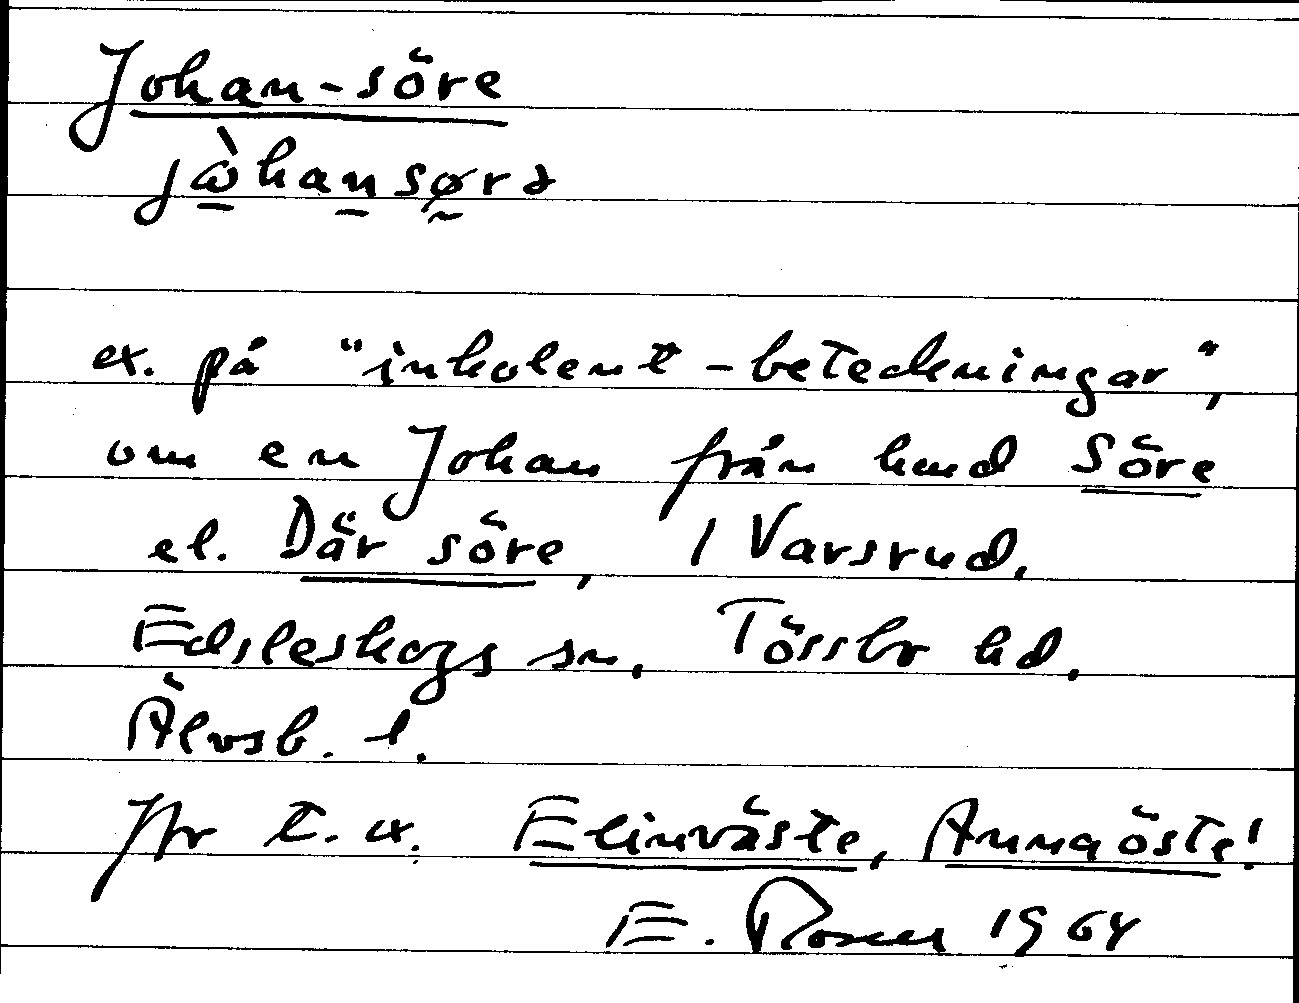 Johan-söre
jὼhansørə
ex. på "inkolent-beteckningar",
om en Johan från hmd Söre
el. Där söre, i Varsrud,
Edsleskogs sn, Tössbo hd,
Älvsb. l.
Jfr t. ex. Elinväste, Annaöste!
E. Rosell 1964